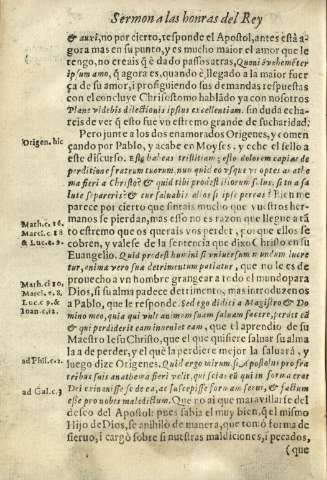 Sermon a las honras del Rey
& auxi, no por cierto, responde el Apostol, antes està a-
gora mas en su punto, y es mucho maior el amor que le
tengo, no creais q̃ è dado passos atras, Quoniã vehemẽter
ipsum amo, q̃ agora es, quando è llegado a la maior fuer
ça de su amor, i prosiguiendo sus demandas respuestas
con el concluye Chrisostomo hablãdo ya con nosotros
Planè videbis dilectionis ipsius excellentiam. sin duda echa-
reis de ver q̃ esto fue vn estremo grande de su charidad.
Pero junte a los dos enamorados Origenes, y comen
Origen. hic
çando por Pablo, y acabe en Moyses, y eche el sello a
este discurso. Esto habeas tristitiam; esto dolorem capias de
perditione fratrum tuorum. nun quid eo vsque vt optes anathe
ma fieri a Christo? & quid tibi prodest illorum salus, si tu a sa
lute separeris? & cur saluabis alios si ipse pereas? Bien me
parece por cierto que sintais mucho que vuestros her-
Math. c. 16.
manos se pierdan, mas esto no es razon que llegue a tã
Marci. c. 18
to estremo que os querais vos perder, por que ellos se
& Luc. e. 9.
cobren, y valese de la sentencia que dixo Christo en su
Euangelio. Quid prodest homini si vniuersum mundum lucre
tur, anima vero sua detrimentum patiatur, que no le es de
prouecho a vn hombre grangear a todo el mundo para
Math. ci 10,
Dios, si su alma padece detrimento, mas introduzenos
Marci. e. 8,
Luc. c. 9 &
a Pablo, que le responde. Sed ego didici a Magistro & Do
Ioan. c. 12.
mino meo, quia qui vult animam suam saluam facere, perdet eã
& qui perdiderit eam inueniet eam, que el aprendio de su
Maestro Iesu Christo, que el que quisiere saluar su alma
la a de perder, y el que la perdiere mejor la saluarà, y
ad Phil. c. 2.
luego dize Origenes. Quid ergo mirum si Apostolus pro fra
tribus suis anathema fieri velit, qui scias eũ qui in forma erat
ad Gal. c. 3
Dei exinanisse se de ea, ac suscepisse formam serui, & factum
esse pro nobis maledictum. Que no ai que marauillarse del
deseo del Apostol: pues sabia el muy bien, q̃ el mismo
Hijo de Dios, se anihilò de manera, que tomò forma de
sieruo, i cargò sobre si nuestras maldiciones, i pecados,
(que